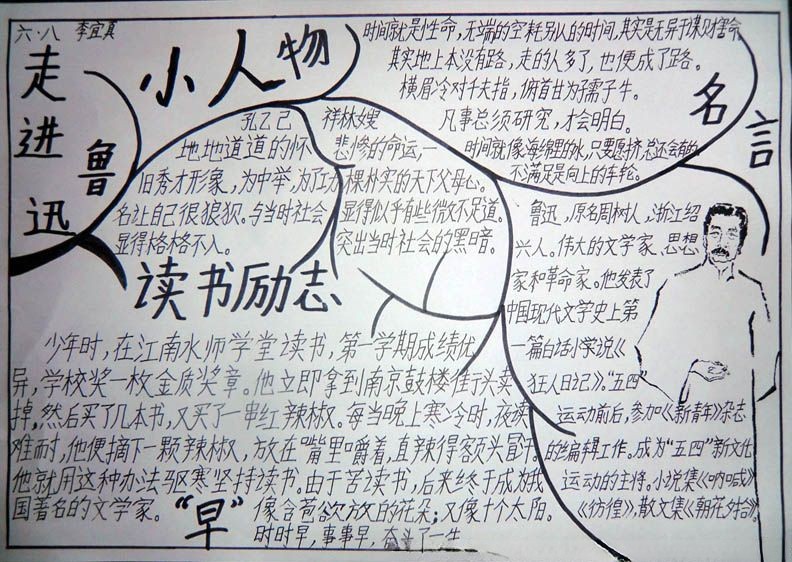 六·八 李宜真
走进鲁迅
小人物
时间就是性命,无端的空耗别人的时间,其实是无异于谋财害命
其实地上本没有路,走的人多了,也便成了路。
横眉冷对千夫指,俯首甘为孺子牛。
凡事总须研究,才会明白。
时间就像海绵里的水,只要愿挤,总还会有的
不满足是向上的车轮。
名言
孔乙己
地地道道的怀
旧秀才形象,为中举,为了功
名让自己很狼狈。与当时社会
显得格格不入。
祥林嫂
悲惨的命运,一
棵朴实的天下父母心。
显得似乎有些微不足道。
突出当时社会的黑暗。
鲁迅,原名周树人,浙江绍
兴人。伟大的文学家、思想
家和革命家。他发表了
中国现代文学史上第
一篇白话小学说《
狂人日记》。“五四”
运动前后,参加《新青年》杂志
的编辑工作。成为“五四”新文化
运动的主将。小说集《呐喊》
《彷徨》,散文集《朝花夕拾》。
读书励志
少年时,在江南水师学堂读书,第一学期成绩优
异,学校奖一枚金质奖章。他立即拿到南京鼓楼街头卖
掉,然后买了几本书,又买了一串红辣椒。每当晚上寒冷时,夜读
难耐,他便摘下一颗辣椒,放在嘴里嚼着,直辣得额头冒汗。
他就用这种办法驱寒坚持读书。由于苦读书,后来终于成为我
国著名的文学家。
“早”
像含苞欲放的花朵;又像十个太阳。
时时早,事事早,奋斗了一生